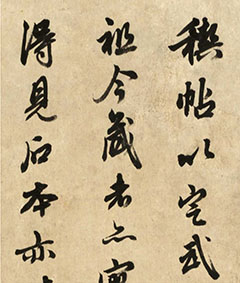 禊帖以定武
祖今藏者亦寡
得見石本亦